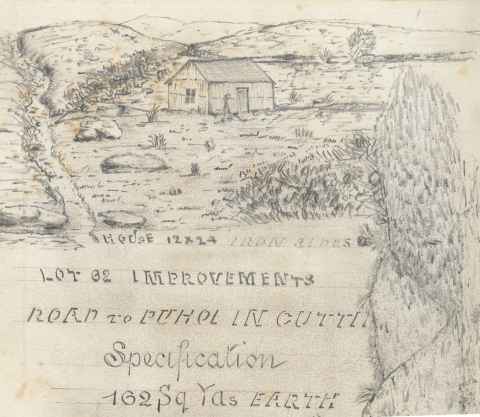 HOUSE 12X24 IRON SIDES
LOT 32 IMPROVEMENTS
ROAD to PUHOI IN CUTTI
Specification
162 Sq Yds EARTH